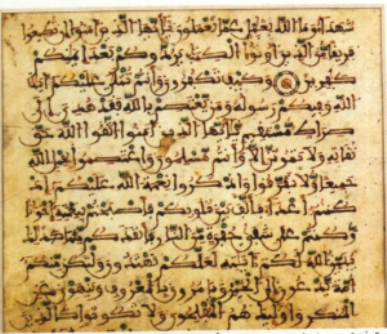 شهداء وما الله بغافل عما تعملون يأيها الذين ءامنوا إن تطيعوا
فريقا من الذين أوتوا الكتب يردوكم بعد إيمنكم
كفرين وكيف تكفرون وأنتم تتلى عليكم ءايت
الله وفيكم رسوله ومن يعتصم بالله فقد هدي إلى
صراط مستقيم يأيها الذين ءامنوا اتقوا الله حق
تقاته ولا تموتن إلا وأنتم مسلمون واعتصموا بحبل الله
جميعا ولا تفرقوا واذكروا نعمت الله عليكم إذ
كنتم أعداء فألف بين قلوبكم فأصبحتم بنعمته إخونا
وكنتم على شفا حفرة من النار فأنقذكم منها كذلك
يبين الله لكم ءايته لعلكم تهتدون ولتكن منكم
أمة يدعون إلى الخير ويأمرون بالمعروف وينهون عن
المنكر وأولئك هم المفلحون ولا تكونوا كالذين